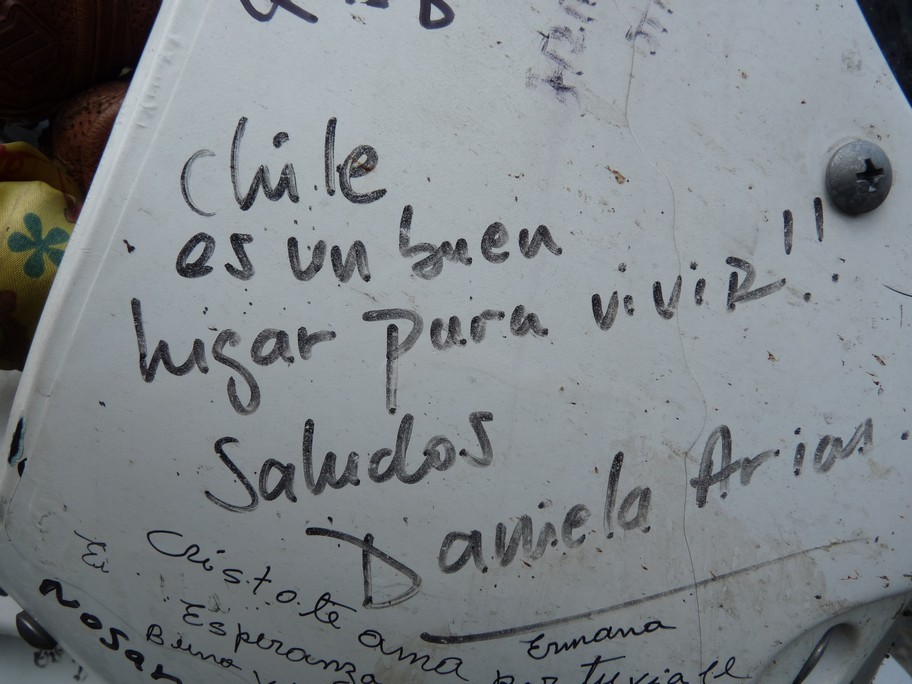 Chile
es un buen
lugar para viviR!!
Saludos
Daniela Arias.
Cristo te ama Ermana
Esperanza por tu viaje
Buena